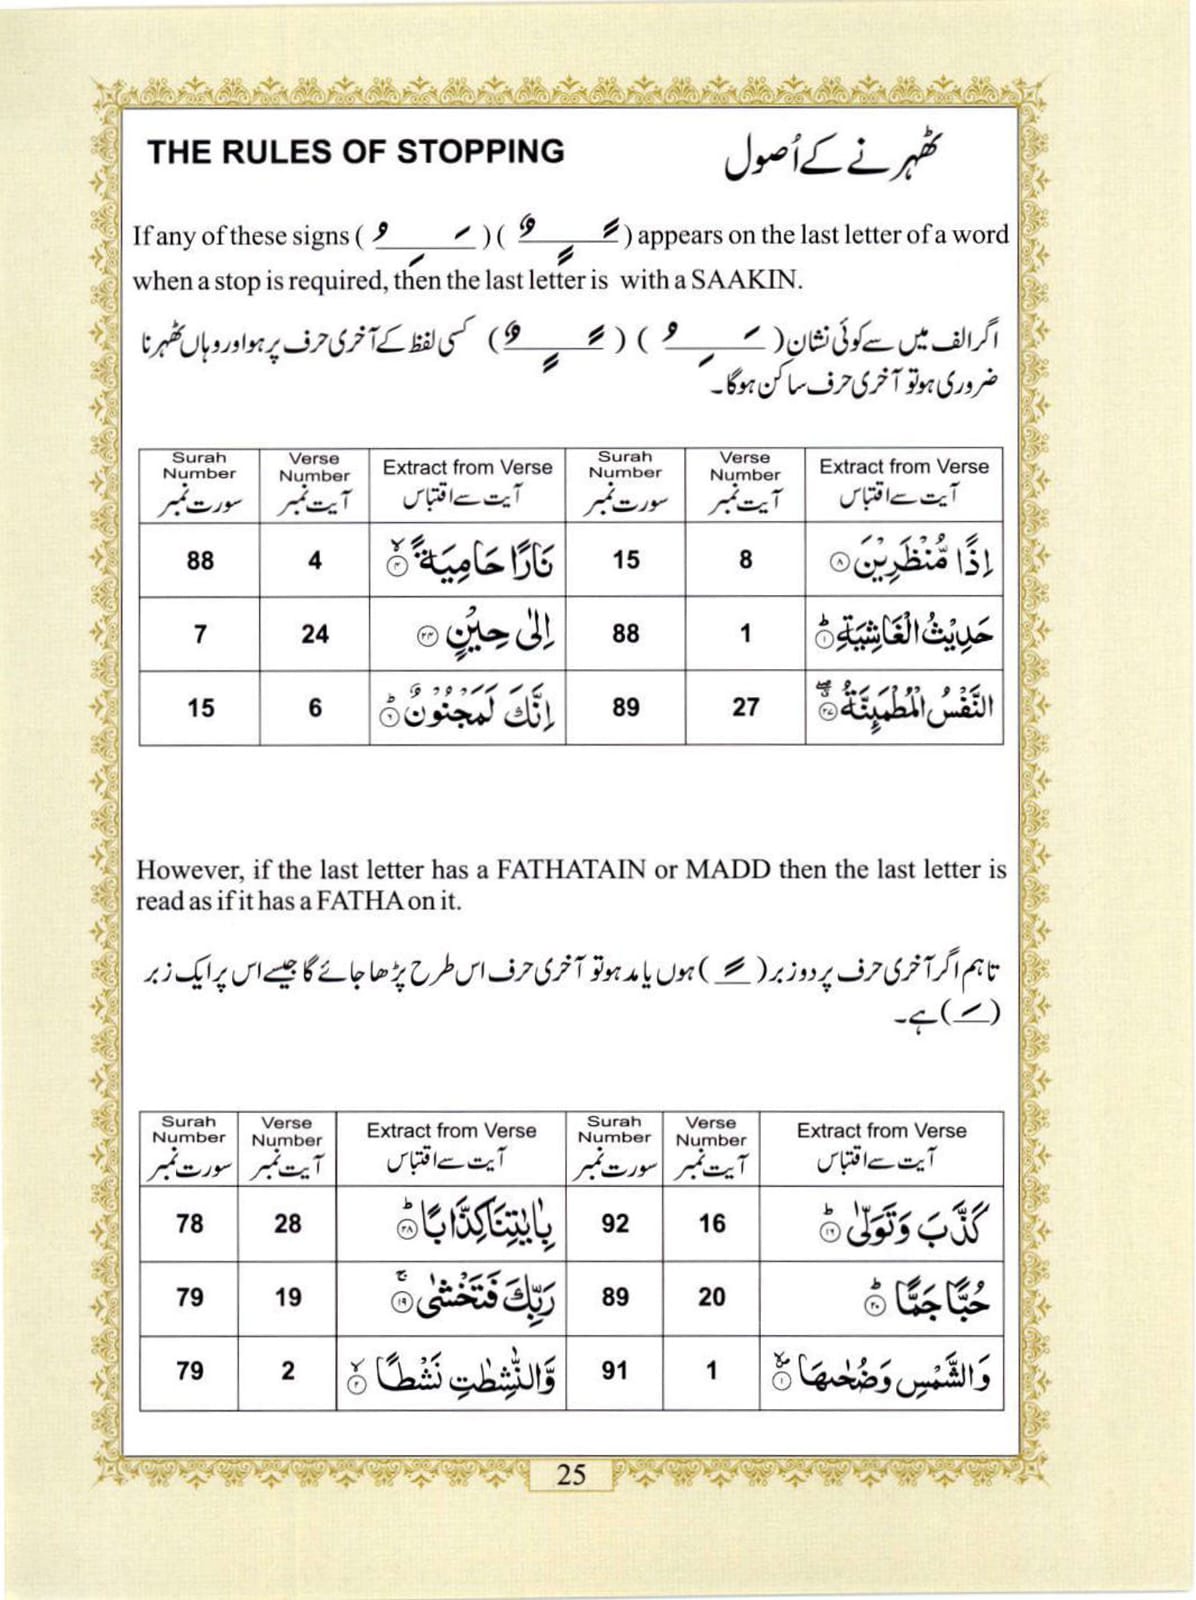 THE RULES OF STOPPING ٹھہرنے کے اُصول
If any of these signs ( ُ َ ِ ) ( ٌ ً ٍ ) appears on the last letter of a word
when a stop is required, then the last letter is with a SAAKIN.
اگر الف میں سے کوئی نشان ( َ ِ ُ ) ( ً ٍ ٌ ) کسی لفظ کے آخری حرف پر ہو اور وہاں ٹھہرنا
ضروری ہو تو آخری حرف ساکن ہوگا۔
Surah Number سورت نمبر | Verse Number آیت نمبر | Extract from Verse آیت سے اقتباس | Surah Number سورت نمبر | Verse Number آیت نمبر | Extract from Verse آیت سے اقتباس
88 | 4 | نَارًا حَامِيَةً ۙ﴿۴﴾ | 15 | 8 | اِذًا مُّنْظَرِيْنَ ﴿۸﴾
7 | 24 | اِلٰى حِيْنٍ ﴿۲۴﴾ | 88 | 1 | حَدِيْثُ الْغَاشِيَةِ ؕ﴿۱﴾
15 | 6 | اِنَّكَ لَمَجْنُوْنٌ ؕ﴿۶﴾ | 89 | 27 | النَّفْسُ الْمُطْمَىِٕنَّةُ ۖ﴿۲۷﴾
However, if the last letter has a FATHATAIN or MADD then the last letter is
read as if it has a FATHA on it.
تاہم اگر آخری حرف پر دو زبر ( ً ) ہوں یا مد ہو تو آخری حرف اس طرح پڑھا جائے گا جیسے اس پر ایک زبر
( َ ) ہے۔
Surah Number سورت نمبر | Verse Number آیت نمبر | Extract from Verse آیت سے اقتباس | Surah Number سورت نمبر | Verse Number آیت نمبر | Extract from Verse آیت سے اقتباس
78 | 28 | بِاٰيٰتِنَا كِذَّابًا ؕ﴿۲۸﴾ | 92 | 16 | كَذَّبَ وَتَوَلّٰى ؕ﴿۱۶﴾
79 | 19 | رَبِّكَ فَتَخْشٰى ۚ﴿۱۹﴾ | 89 | 20 | حُبًّا جَمًّا ؕ﴿۲۰﴾
79 | 2 | وَّالنّٰشِطٰتِ نَشْطًا ۙ﴿۲﴾ | 91 | 1 | وَالشَّمْسِ وَضُحٰىهَا ۪ۙ﴿۱﴾
25